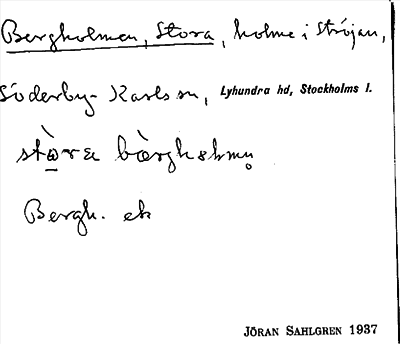 Bergholmen, Stora, holme i Ströjan,
Söderby-Karls sn, Lyhundra hd, Stockholms l.
Bergh. ek
JÖRAN SAHLGREN 1937